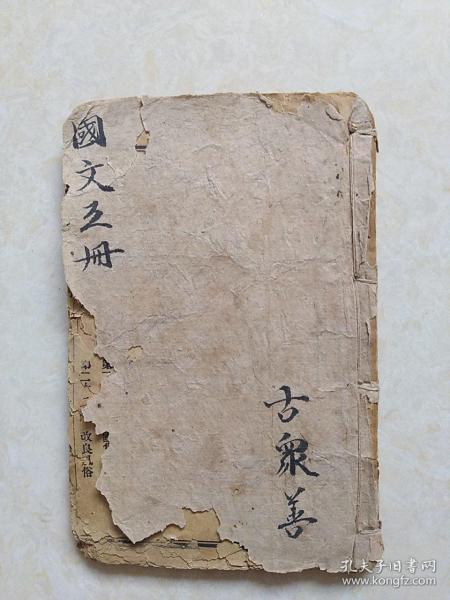 國文五冊
古衆善
改良風俗
孔夫子旧书网
www.kongfz.com